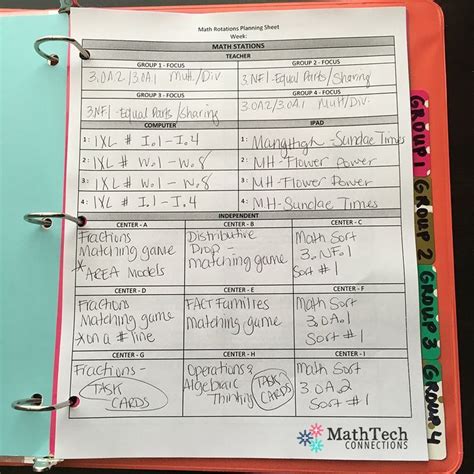 Math Rotations Planning Sheet
Week:
MATH STATIONS
TEACHER
GROUP 1 - FOCUS
GROUP 2 - FOCUS
3.OA2/3.OA1 Mult/Div
3.NF1-Equal Parts/Sharing
GROUP 3 - FOCUS
GROUP 4 - FOCUS
3.NF1-Equal Parts/Sharing
3.OA2/3.OA1 Mult/Div.
COMPUTER
IPAD
1: IXL # I.1 - I.4
1: Manghigh - Sundae Times
2: IXL # W.1 - W.8
2: MH-Flower Power
3: IXL # W.1 - W.8
3: MH-Flower Power
4: IXL # I.1 - I.4
4: MH-Sundae Times
INDEPENDENT
CENTER - A
CENTER - B
CENTER - C
Fractions
Matching game
* AREA Models
Distributive
Drop -
matching game
Math Sort
3.NF.1
Sort #1
CENTER - D
CENTER - E
CENTER - F
Fractions
Matching game
*on a # line
FACT Families
Matching game
Math Sort
3.OA.1
Sort #1
CENTER - G
CENTER - H
CENTER - I
Fractions -
TASK
CARDS
Operations &
Algebraic
Thinking
TASK
CARDS
Math Sort
3.OA2
Sort #1
MathTech
CONNECTIONS
GROUP 1
GROUP 2
GROUP 3
GROUP 4